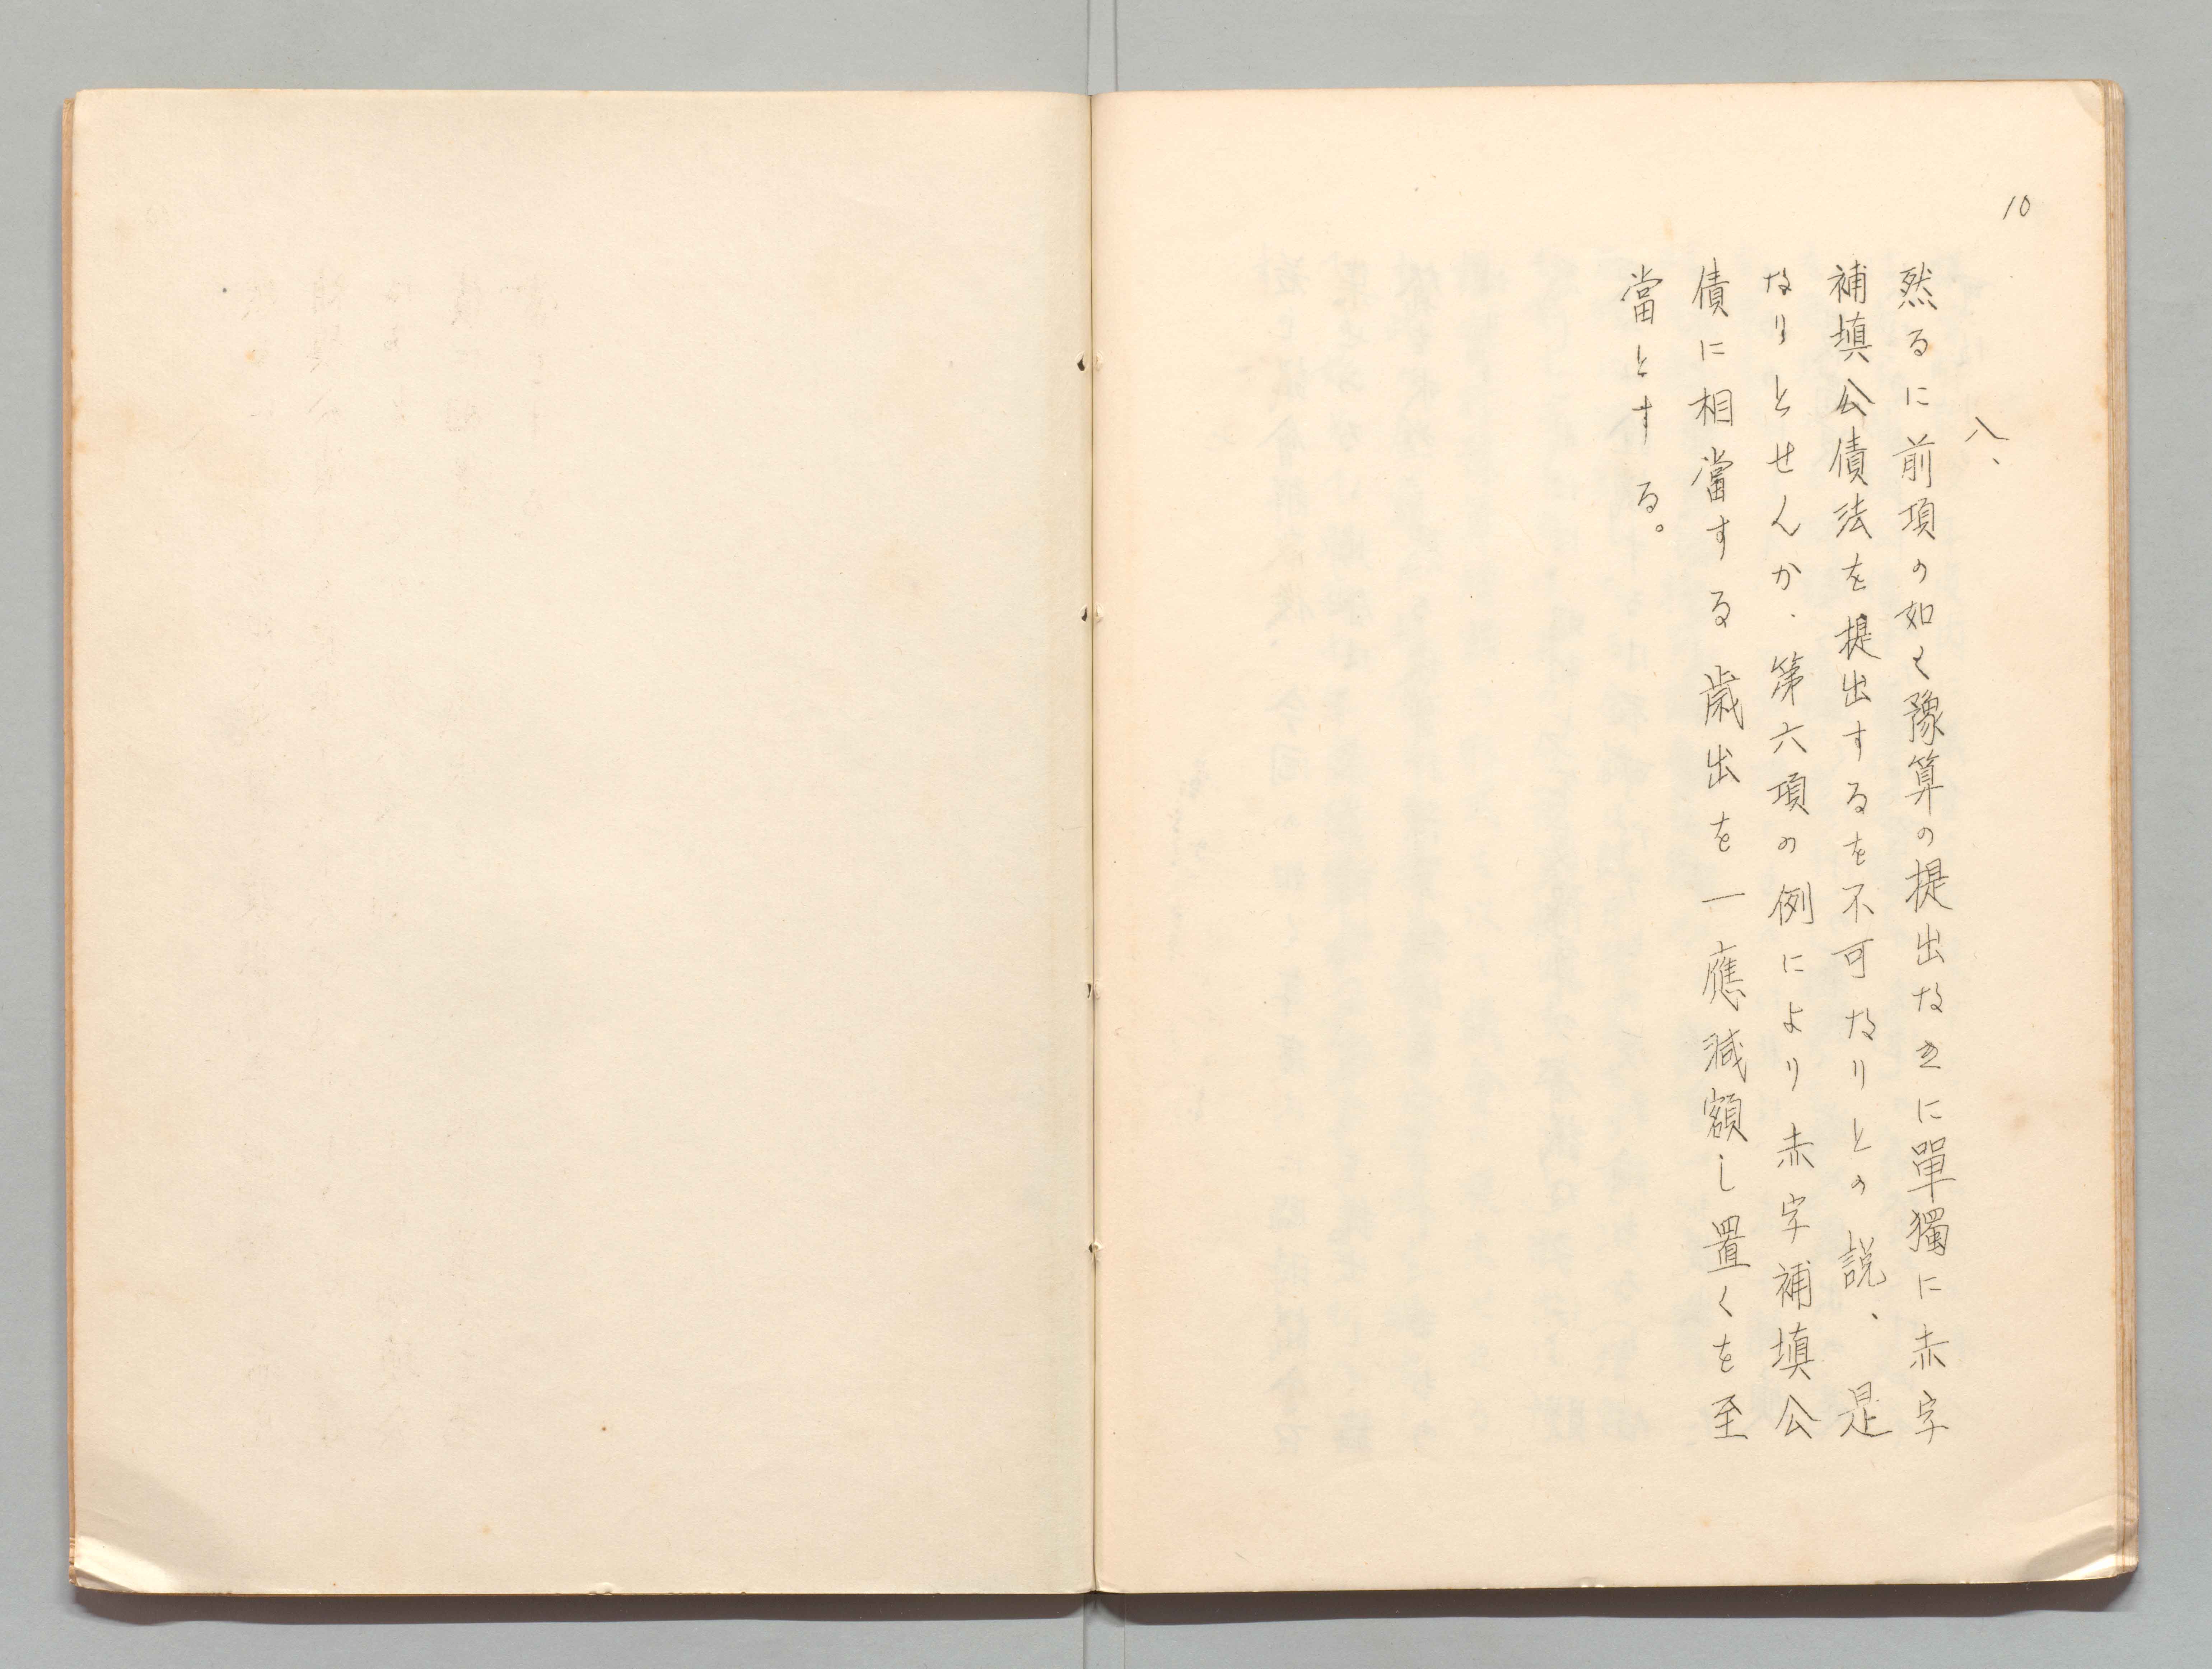 10
八、
然るに前項の如く豫算の提出なきに單獨に赤字
補填公債法を提出するを不可なりとの説、是
なりとせんか、第六項の例により赤字補填公
債に相當する歳出を一應減額し置くを至
當とする。